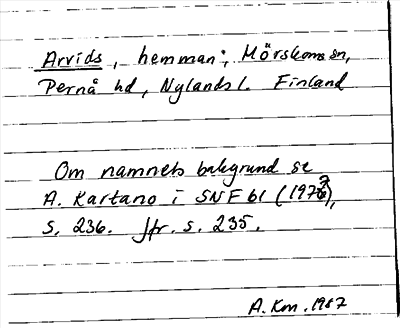 Arvids, hemman i Mörskoms sn,
Pernå hd, Nylands l. Finland
Om namnets bakgrund se
A. Kartano i SNF 61 (1977),
s. 236. Jfr. s. 235.
A. Km. 1987